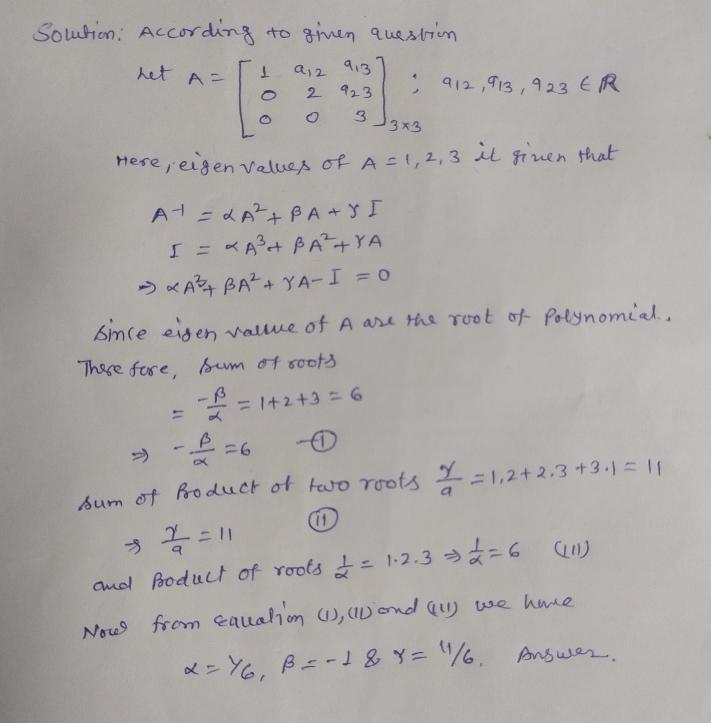 Solution: According to given question
Let A = [ 1 a12 a13
0 2 a23 ; a12, a13, a23 ∈ R
0 0 3 ]3×3
Here, eigen values of A = 1, 2, 3 it given that
A⁻¹ = αA² + βA + γI
I = αA³ + βA² + γA
⇒ αA³ + βA² + γA - I = 0
Since eigen vallue of A are the root of Polynomial.
There fore, sum of roots
= -β/α = 1+2+3 = 6
⇒ -β/α = 6 —(I)
Sum of Product of two roots γ/a = 1.2+2.3+3.1 = 11
⇒ γ/a = 11 (II)
and Poduct of roots 1/α = 1.2.3 ⇒ 1/α = 6 (III)
Now from equation (I), (II) and (III) we have
α = 1/6, β = -1 & γ = 11/6. Answer.